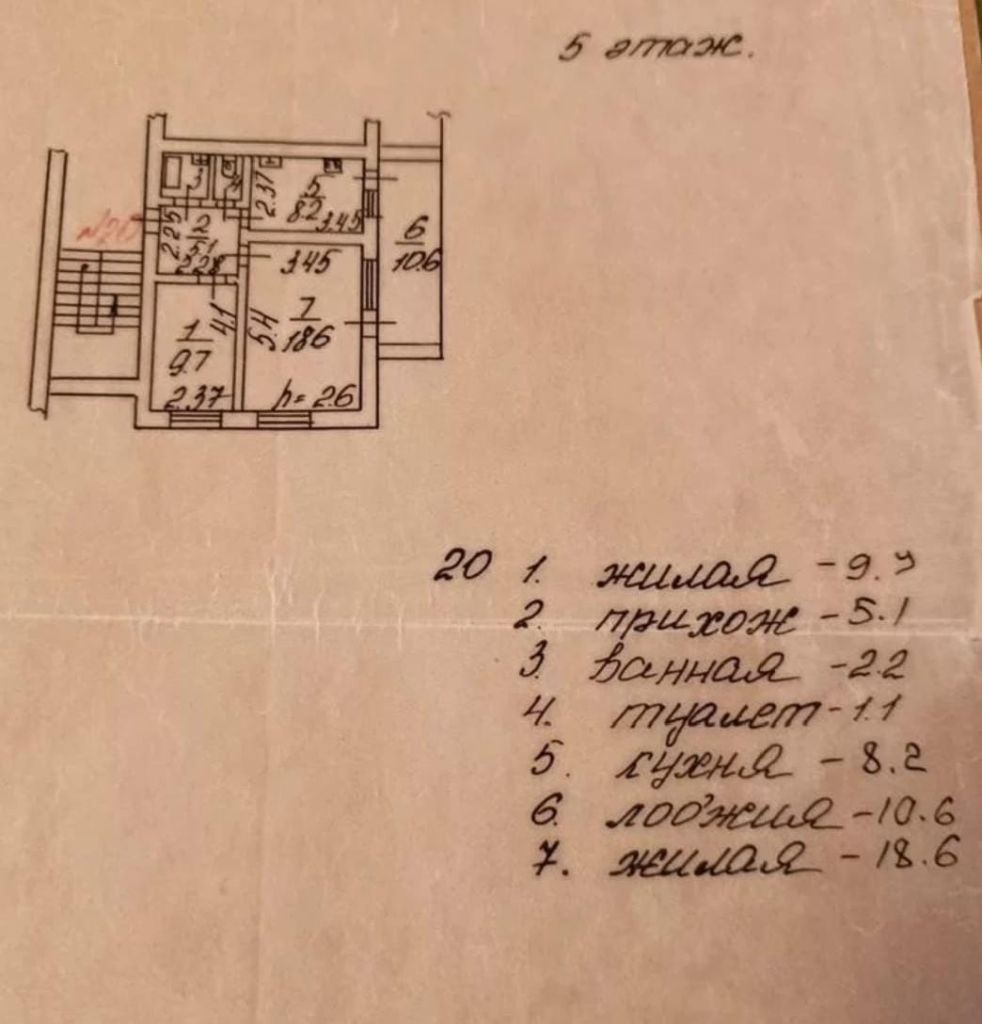 5 этаж.
№20
2.37
5
8.2
3.45
2.25
2
5.1
2.28
6
10.6
3.45
7
18.6
5.4
h=2.6
1
9.7
4.1
2.37
20 1. жилая -9.7
2. прихож -5.1
3. ванная -2.2
4. туалет-1.1
5. кухня -8.2
6. лоджия -10.6
7. жилая -18.6